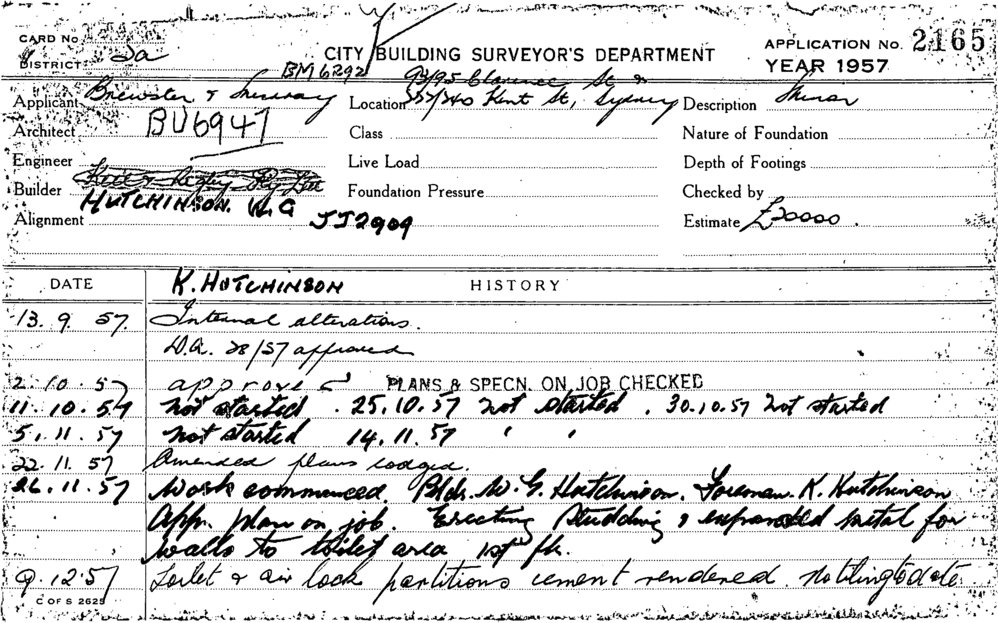 CARD No.
CITY BUILDING SURVEYOR'S DEPARTMENT
APPLICATION No. 2165
DISTRICT 2a
YEAR 1957
BM6292 93/95 Clarence St &
Applicant Brewster & Murray Location 337/340 Kent St, Sydney Description Minor
Architect BU6947 Class Nature of Foundation
Engineer Live Load Depth of Footings
Builder Pty Ltd Foundation Pressure Checked by
HUTCHINSON. W.G
Alignment JJ2909 Estimate £20000.
DATE K. HUTCHINSON HISTORY
13. 9. 57. Internal alterations.
D.A. 28/57 approved
2. 10. 57 approved PLANS & SPECN. ON JOB CHECKED
11. 10. 57 not started. 25.10.57 not started. 30.10.57 not started
5. 11. 57 not started 14.11.57 " "
22. 11. 57 Amended plans lodged.
26. 11. 57 Work commenced. Bldr. W. G. Hutchinson. Foreman. K. Hutchinson
App. plan on job. Erecting studding & expanded metal for
walls to toilet area 1st flr.
9. 12. 57 Toilet & air lock partitions cement rendered. No tiling to date
C OF S 2625